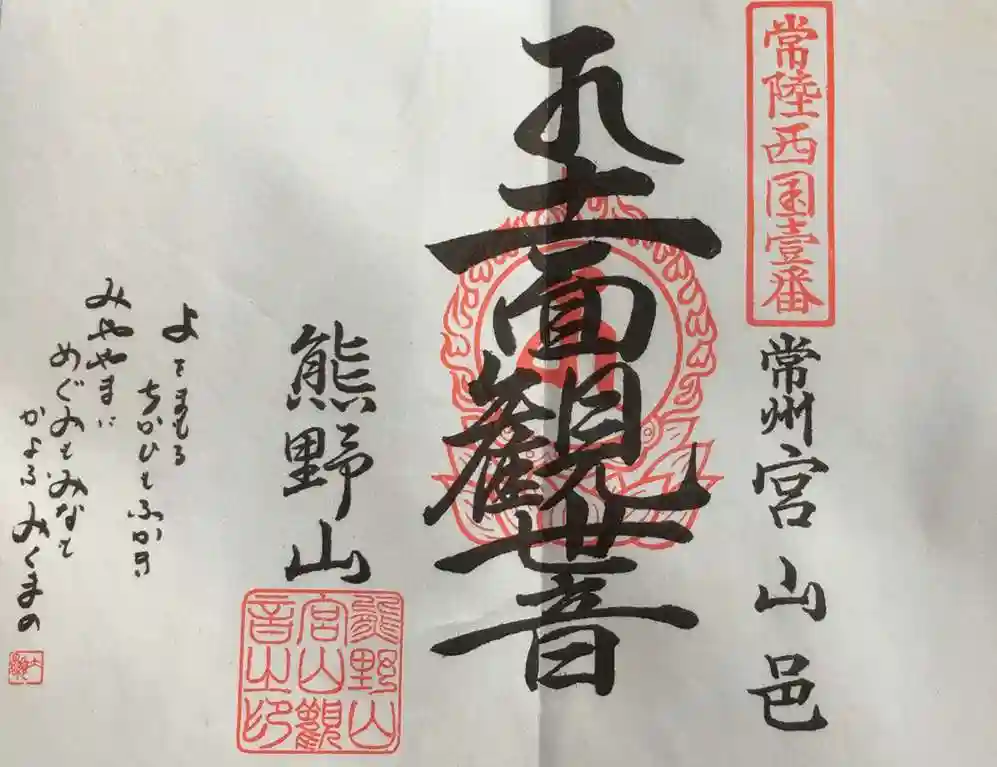 常陸西国壹番
常州宮山邑
十一面觀世音
熊野山
熊野山
宮山觀
音之印
よをまもる
ちかひもふかき
みややまに
めぐみもみなも
かよふみくまの